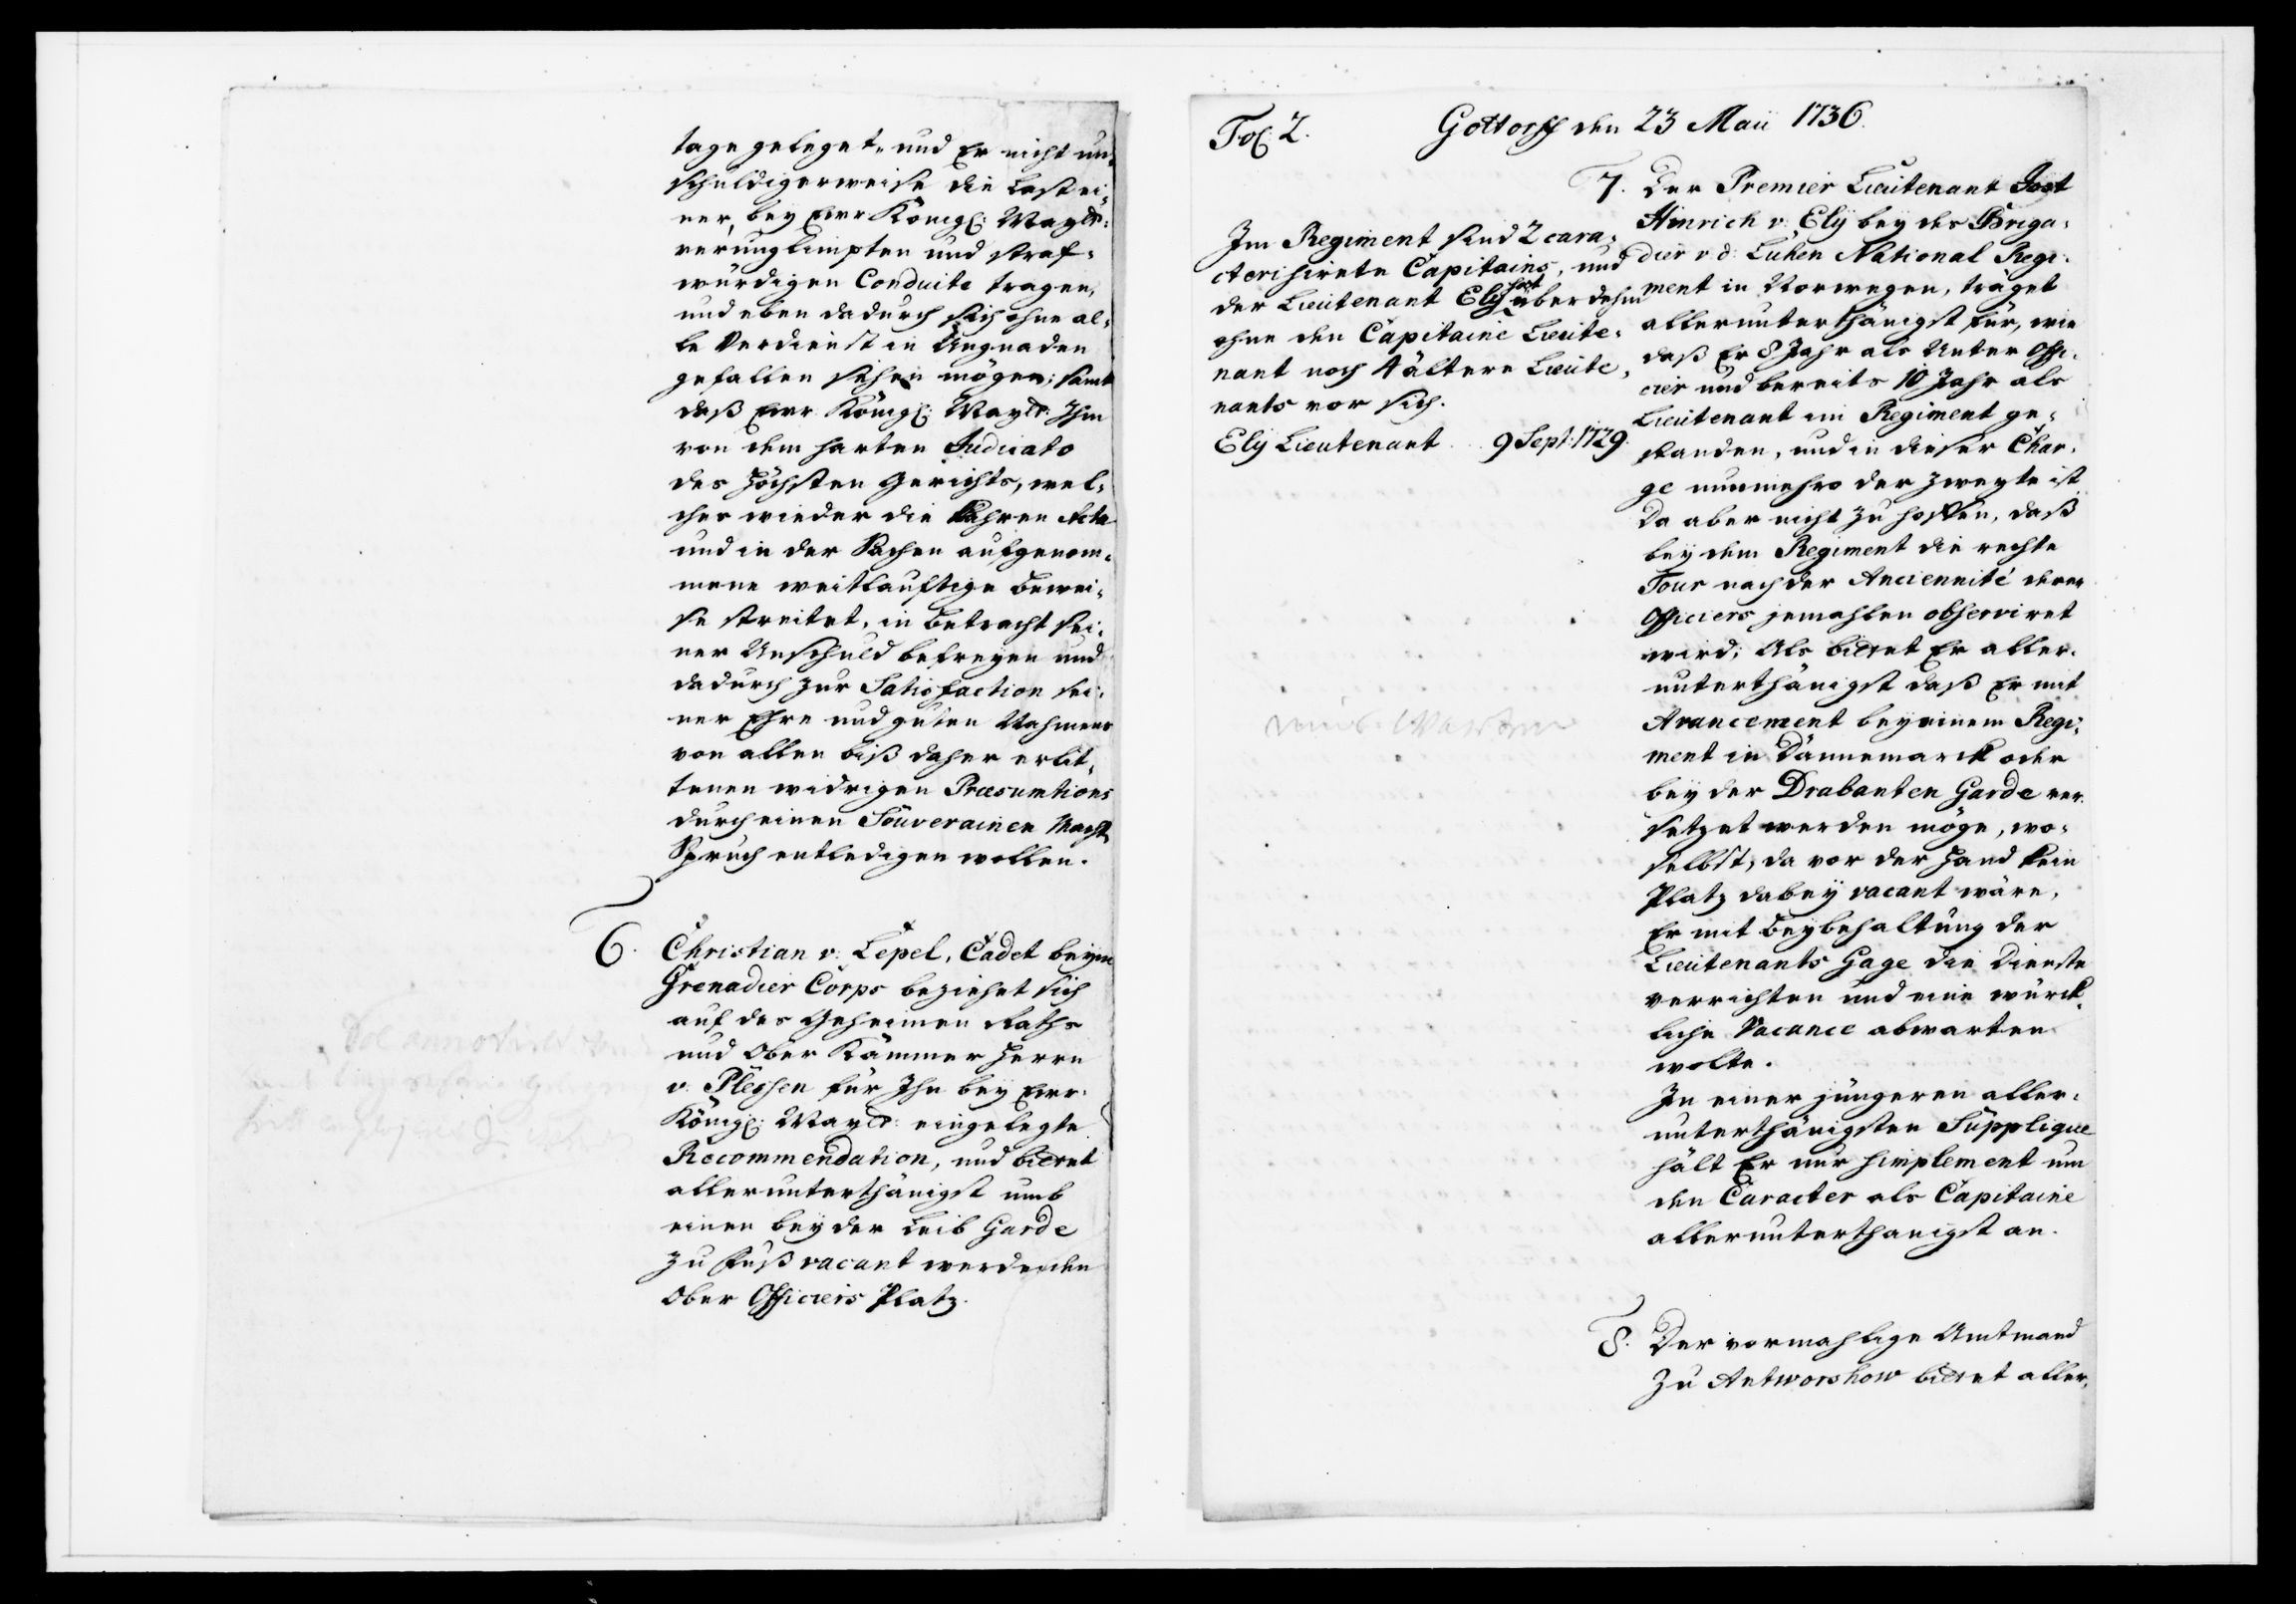 tage geleget, und Er nicht un¬
schuldigerweise die Last ei¬
ner, bey Ewr Königl: Maytt:
verunglimpften und straf¬
würdigen Conduite tragen,
und eben dadurch sich ohne al¬
le Verdienst in Ungnaden
gefallen sehen mögen; samt
daß Ewr Königl: Maytt: Ihm
von dem harten Judicato
des Höchsten Gerichts, wel¬
ches wieder die klahren Acta
und in der Sachen aufgenom¬
mene weitlauftige Bewei¬
se streitet, in Betracht sei¬
ner Unschuld befreyen und
dadurch zur Satisfaction sei¬
ner Ehre und guten Nahmens
von allen biß daher erlit¬
tenen widrigen Præsumtions
durch einen Souverainen Macht
Spruch entledigen wollen.
6. Christian v: Lepel, Cadet beym
Grenadier Corps beziehet sich
auf des Geheimen Raths
und Ober Kämmer Herrn
v: Plessen für Ihn bey Ewr
Königl: Maytt: eingelegte
Recommendation, und bittet
allerunterthänigst umb
einen bey der Leib Garde
zu Fuß vacant werdenden
Ober Officiers Platz.
Fol: 2. Gottorff den 23 Maii 1736.
Im Regiment sind 2 cara¬
cterisirete Capitains, und
der Lieutenant Ely hat überdehm
ohne den Capitaine Lieute¬
nant noch 4 ältere Lieute¬
nants vor sich.
Ely Lieutenant 9 Sept: 1729.
7. Der Premier Lieutenant Jost
Hinrich v: Ely bey des Briga¬
dier v: d: Lühen National Regi¬
ment in Norwegen, träget
allerunterthänigst für, wie
daß Er 8 Jahr als Unter Offi¬
cier und bereits 10 Jahr als
Lieutenant im Regiment ge¬
standen, und in dieser Char¬
ge nunmehro der zweyte ist
Da aber nicht zu hoffen, daß
bey dem Regiment die rechte
Tour nach der Anciennité derer
Officiers jemahlen observiret
wird; Als bittet Er aller¬
unterthänigst daß Er mit
Avancement bey einem Regi¬
ment in Dännemarck oder
bey der Drabanten Garde ver¬
setzet werden möge, wo¬
selbst, da vor der Hand kein
Platz dabey vacant wäre,
Er mit Beybehaltung der
Lieutenants Gage die Dienste
verrichten und eine würck¬
liche Vacance abwarten
wolte.
In einer jüngeren aller¬
unterthänigsten Supplique
hält Er nur simplement um
den Caracter als Capitaine
allerunterthanigst an.
8. Der vormahlige Amtmand
zu Antworskow bittet aller¬